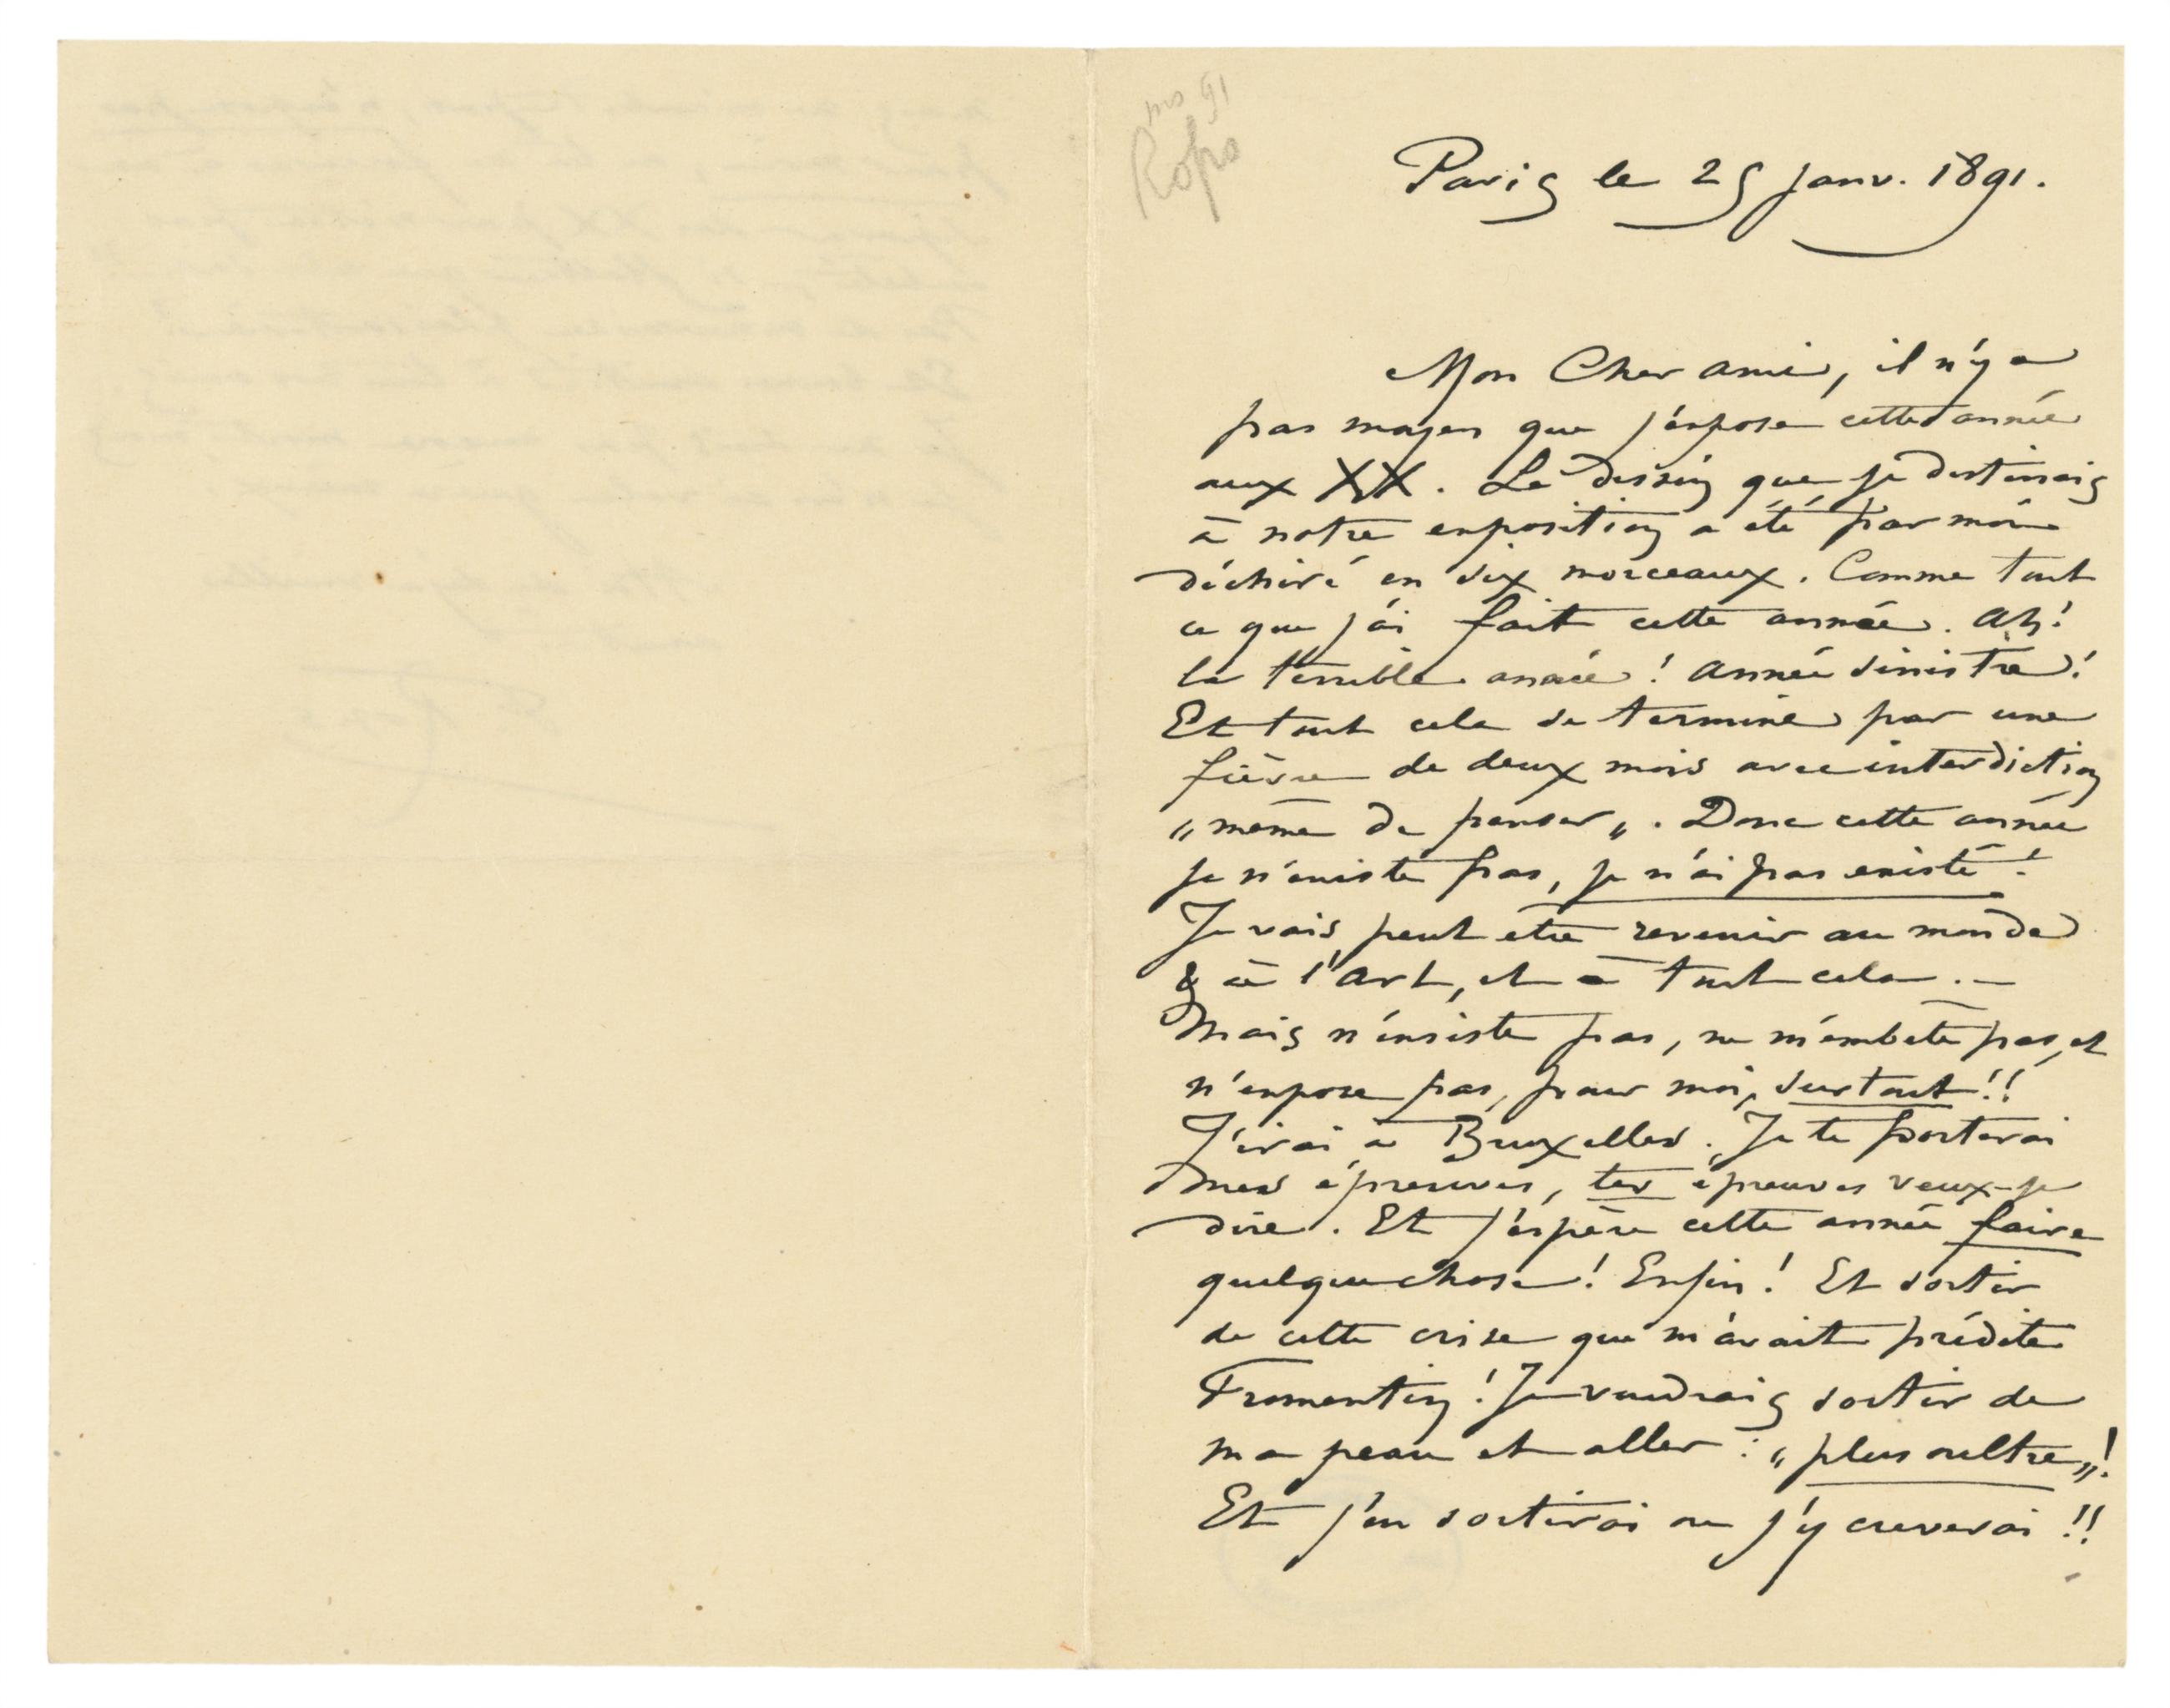 91
Rops
Paris le 25 janv. 1891.
Mon Cher ami, il n'y a
pas moyen que j'expose cette année
aux XX. Le dessin que je destinais
à notre exposition a été par moi
déchiré en six morceaux. Comme tout
ce que j'ai fait cette année. Ah!
la terrible année! Année sinistre!
Et tout cela se termine par une
fièvre de deux mois avec interdiction
„même de penser„. Donc cette année
je n'existe pas, je n'ai pas existé!
Je vais peut etre revenir au monde
& à l'Art, et à tout cela. –
Mais n'insiste pas, ne m'embête pas, et
n'expose pas, pour moi, surtout!!
J'irai à Bruxelles. Je te porterai
mes épreuves, tes épreuves veux-je
dire. Et j'espère cette année faire
quelque chose! Enfin! Et sortir
de cette crise que m'avait prédite
Fromentin! Je voudrais sortir de
ma peau et aller: „plus oultre„!
Et j'en sortirai ou j'y creverai!!